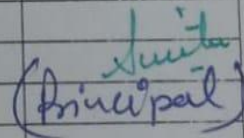 Sunita
(Principal)